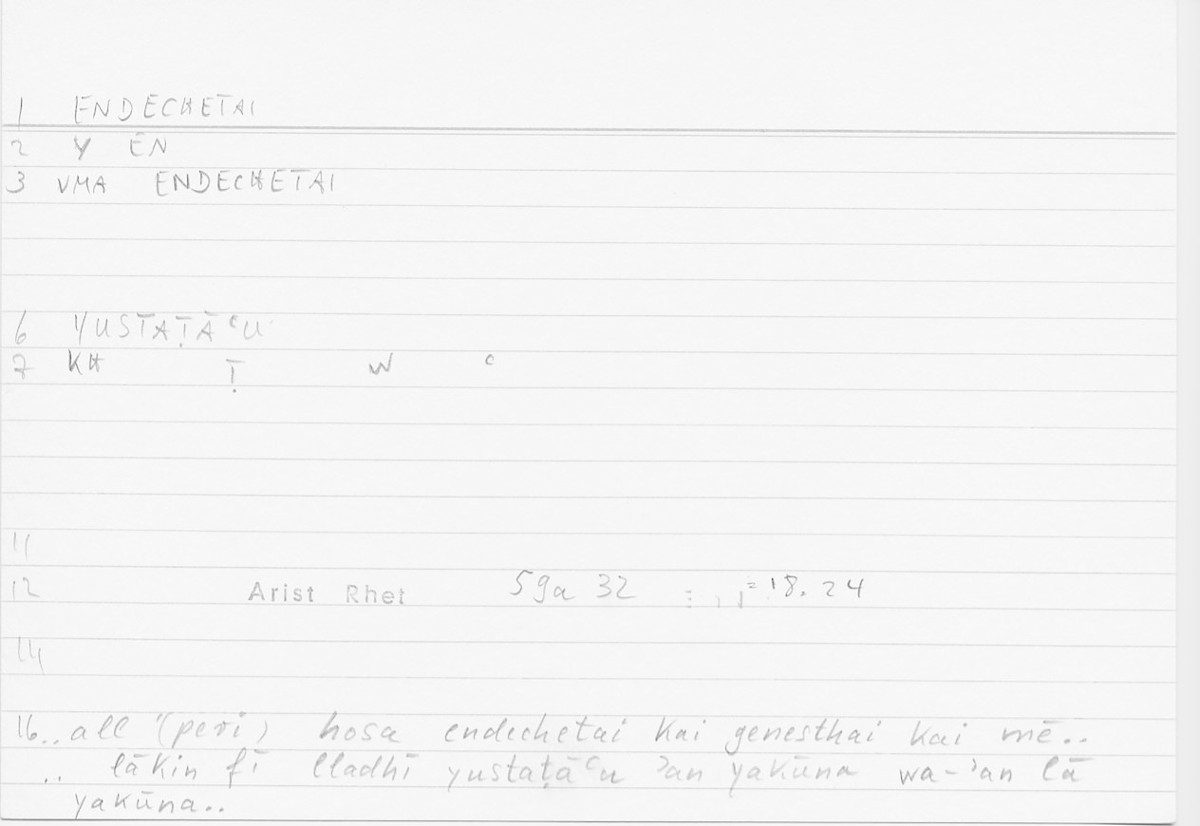 1 ENDECHETAI
2 Y EN
3 VMA ENDECHETAI
6 YUSTAṬĀʿU
7 KH Ṭ W ʿ
11
12 Arist Rhet 59a 32 = 18. 24
14
16.. all '(peri) hosa endechetai kai genesthai kai mē..
.. lākin fī lladhī yustaṭāʿu ʾan yakūna wa-ʾan lā
yakūna..